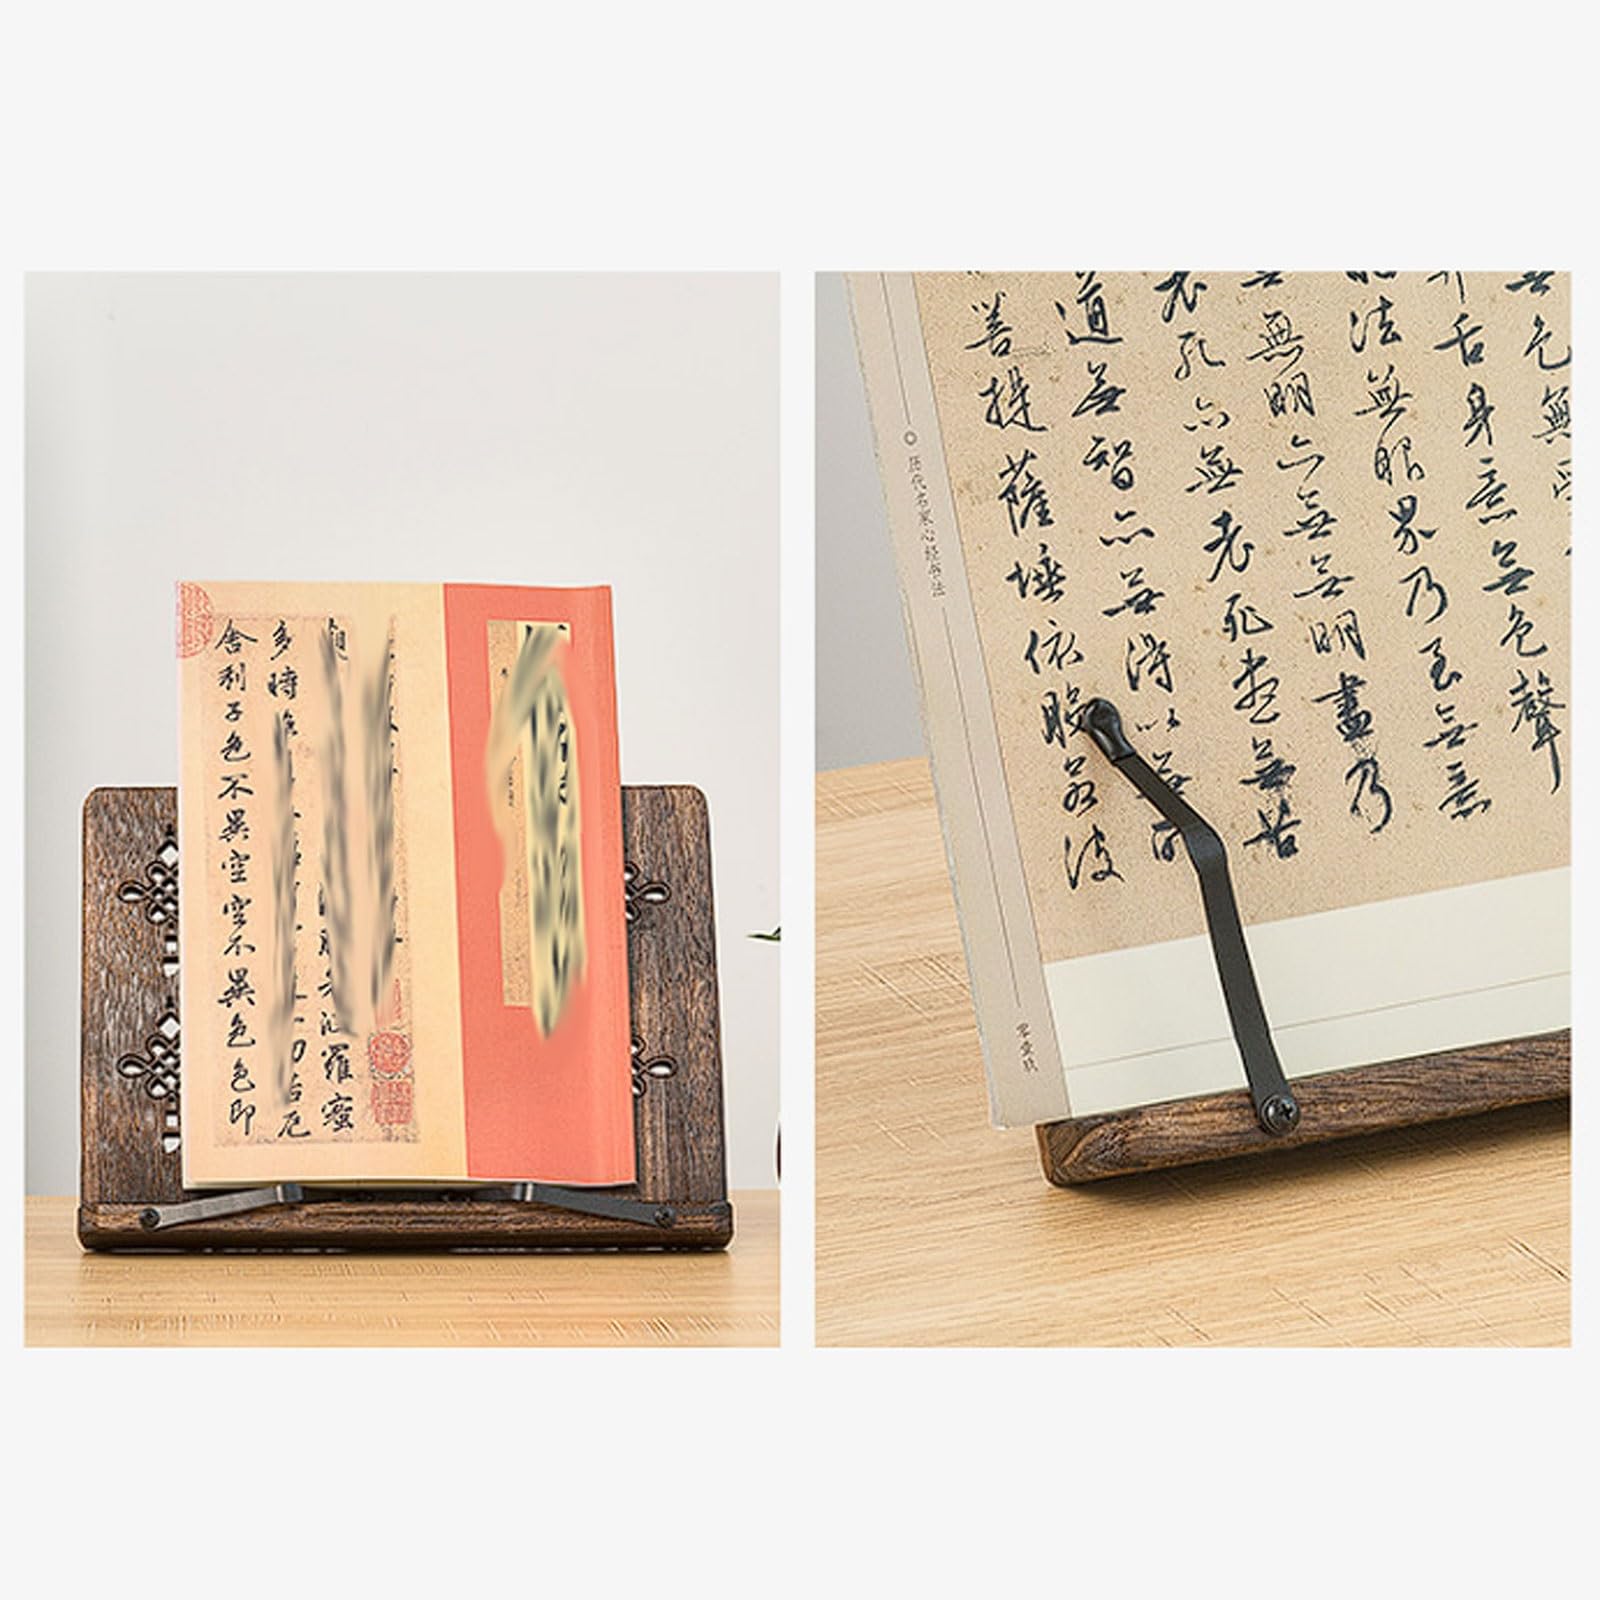 波羅蜜
多時
一切苦厄
舍利子色不異空空不異色色即
色無
舌身意無色聲
法無眼界乃至無意
無無明亦無無明盡乃
老死亦無老死盡無苦
道無智亦無得以無所
菩提薩埵依般若波
历代名家心经书法
零壹玖